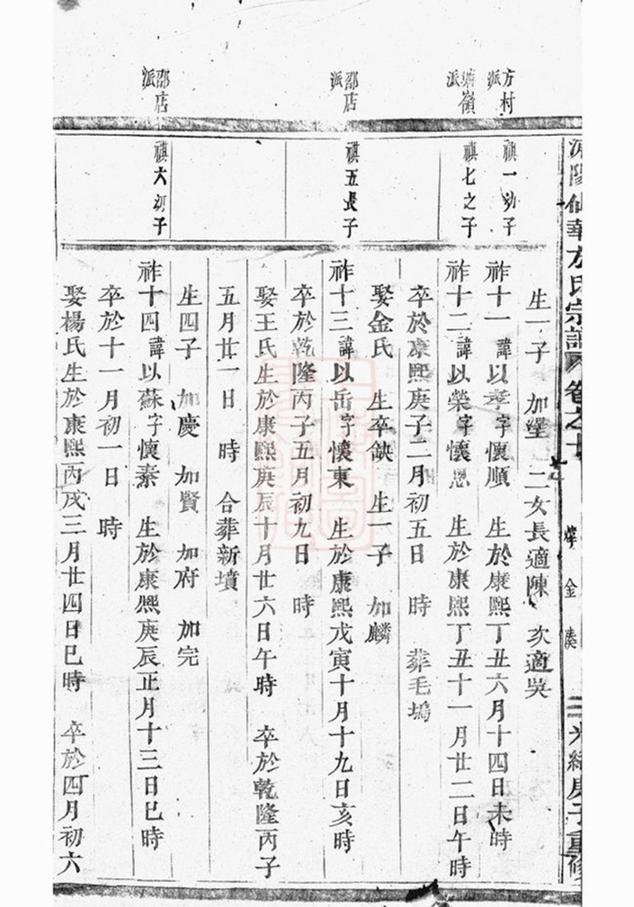 浦陽仙華方氏宗譜 卷之七 金 三 光緒庚子重修
方村派
塘嶺派
邵店派
邵店派
禥一幼子
禥七之子
禥五長子
禥六初子
生一子 加望 二女長適陳 次適吳
祚十一諱以孝字懷順 生於康熙丁丑六月十四日未時
祚十二諱以榮字懷恩 生於康熙丁丑十一月廿二日午時
卒於康熙庚子二月初五日 時 葬毛塢
娶金氏 生卒缺 生一子 加麟
祚十三諱以岳字懷東 生於康熙戊寅十月十九日亥時
卒於乾隆丙子五月初九日 時
娶王氏生於康熙庚辰十月廿六日午時 卒於乾隆丙子
五月廿一日 時 合葬新墳
生四子 加慶 加賢 加府 加完
祚十四諱以蘇字懷素 生於康熙庚辰正月十三日巳時
卒於十一月初一日 時
娶楊氏生於康熙丙戌三月廿四日巳時 卒於四月初六